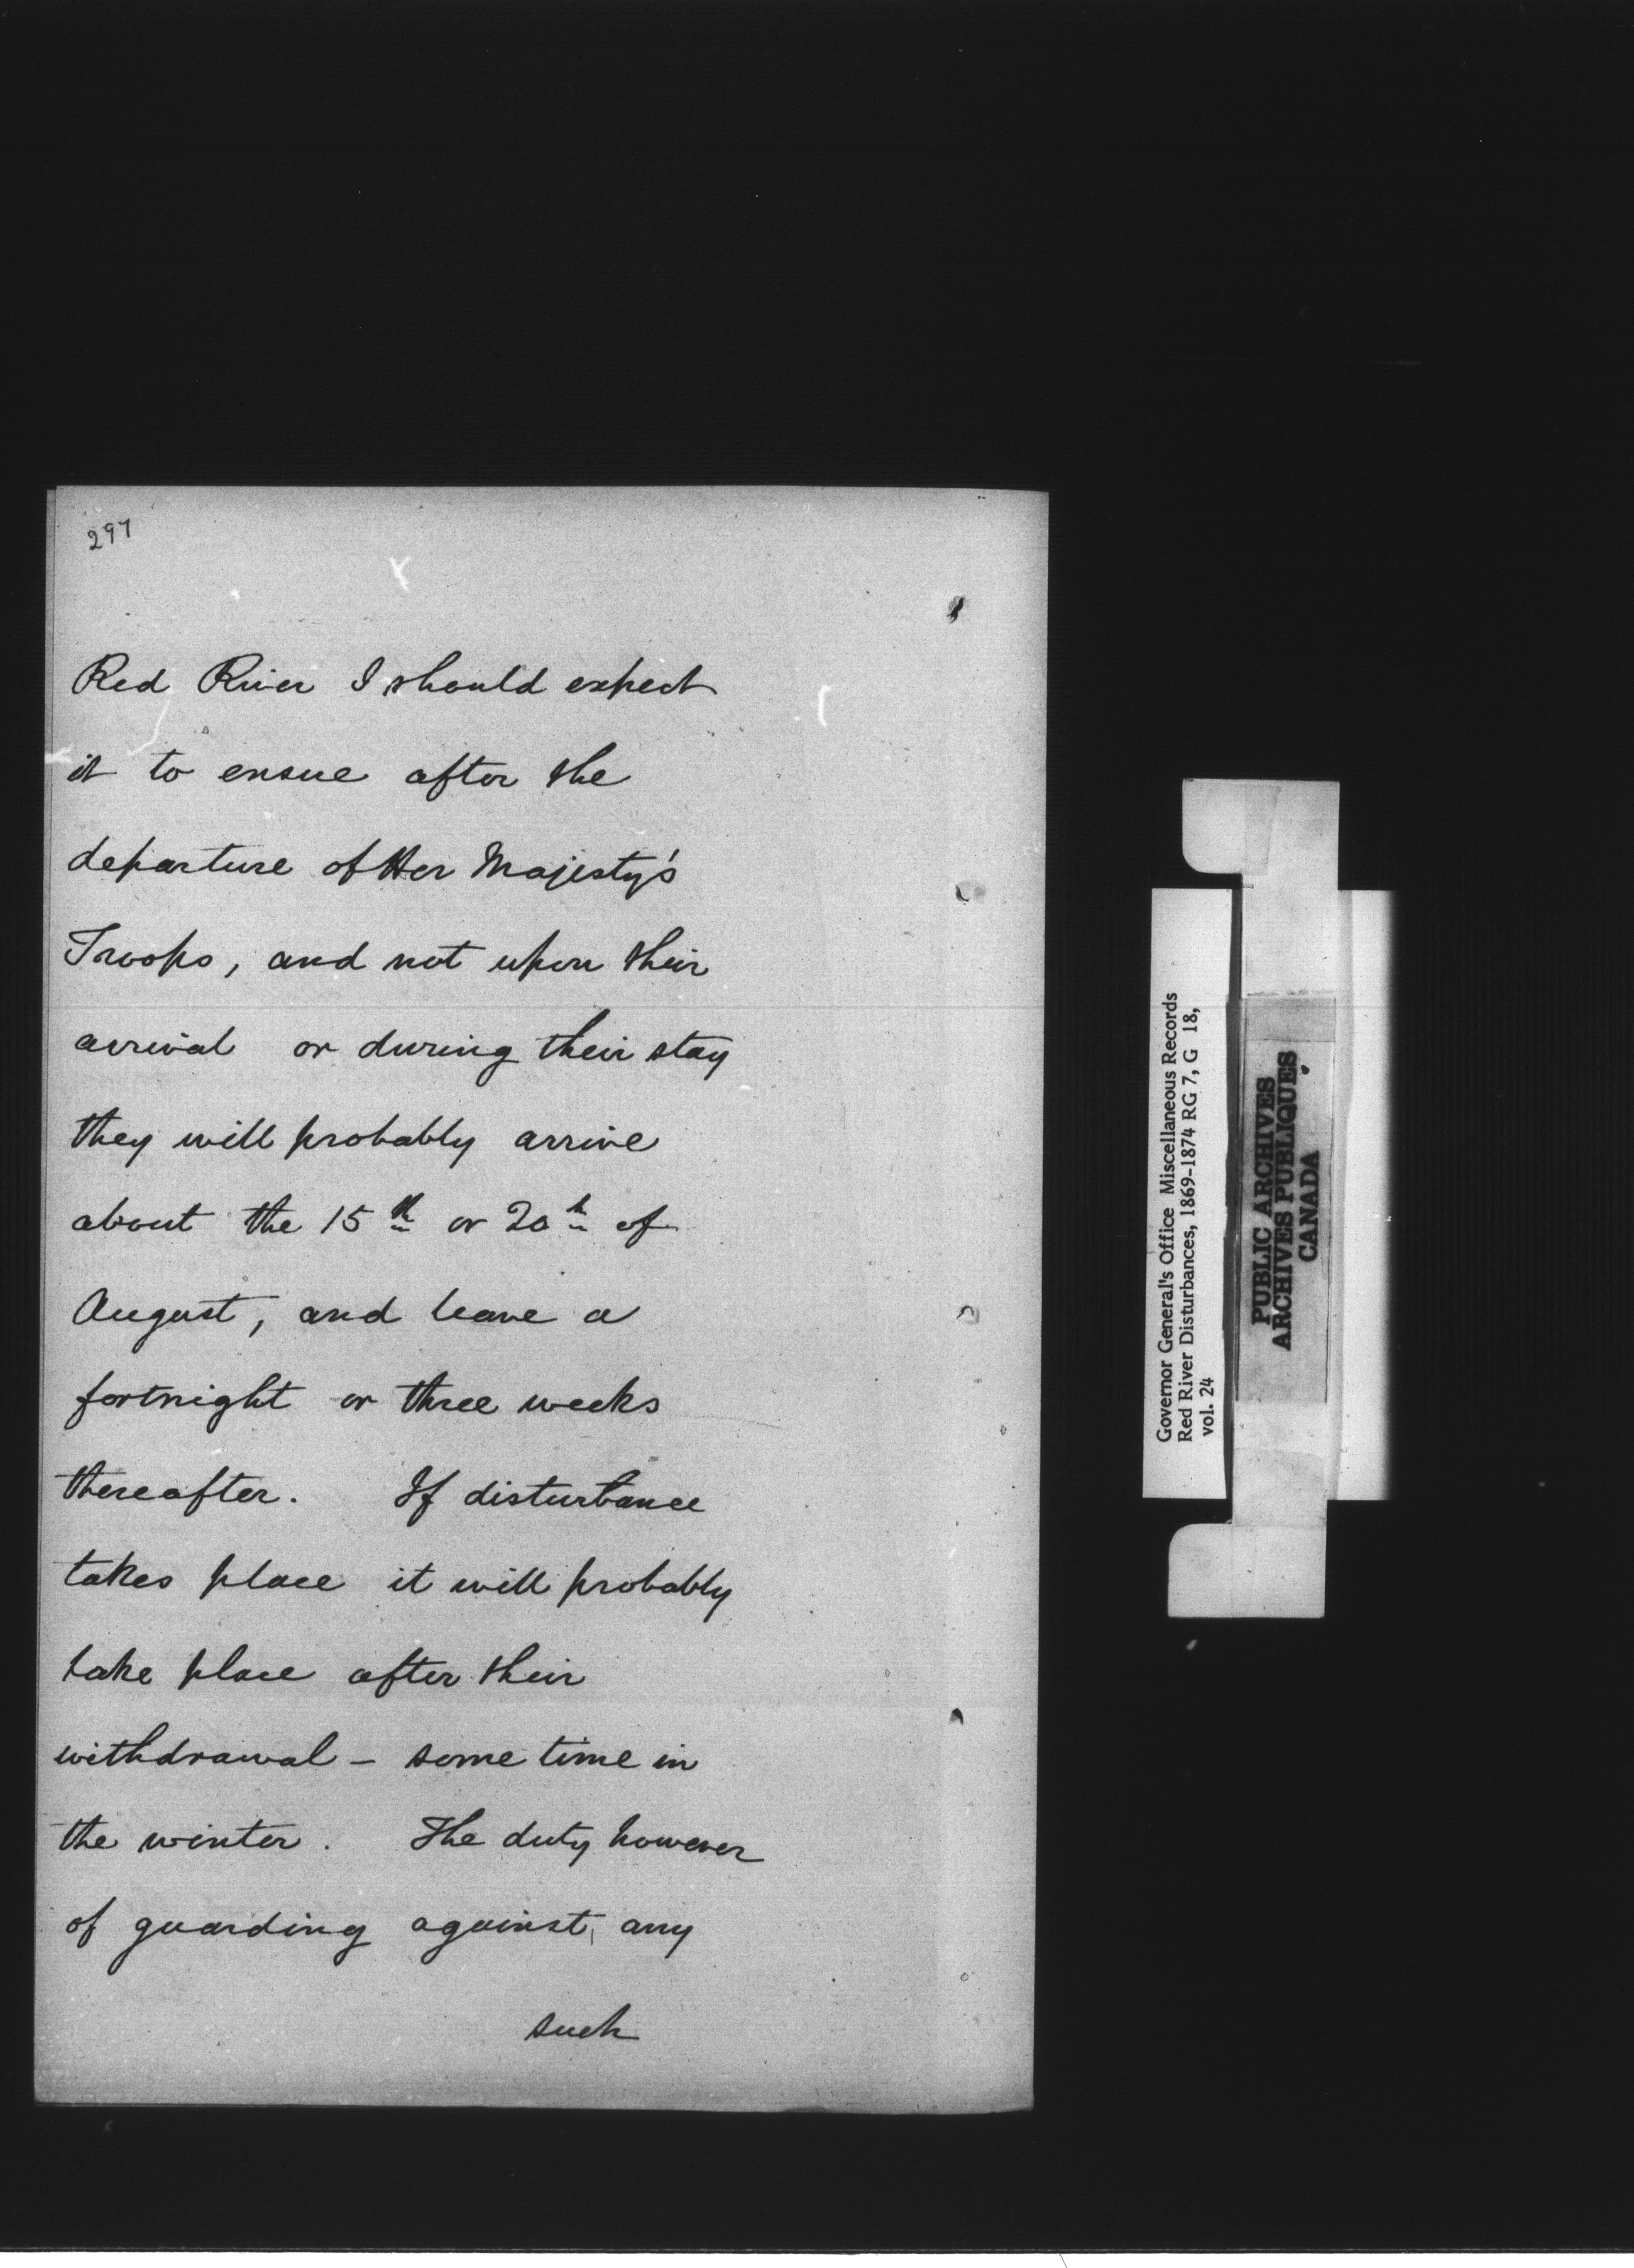 297
Red River I should expect
it to ensue after the
departure of Her Majesty's
Troops, and not upon their
arrival or during their stay
they will probably arrive
about the 15th or 20th of
August, and leave a
fortnight or three weeks
thereafter. If disturbance
takes place it will probably
take place after their
withdrawal - some time in
the winter. The duty however
of guarding against any
such
Governor General's Office Miscellaneous Records
Red River Disturbances, 1869-1874 RG 7, G 18,
vol. 24
PUBLIC ARCHIVES
ARCHIVES PUBLIQUES
CANADA